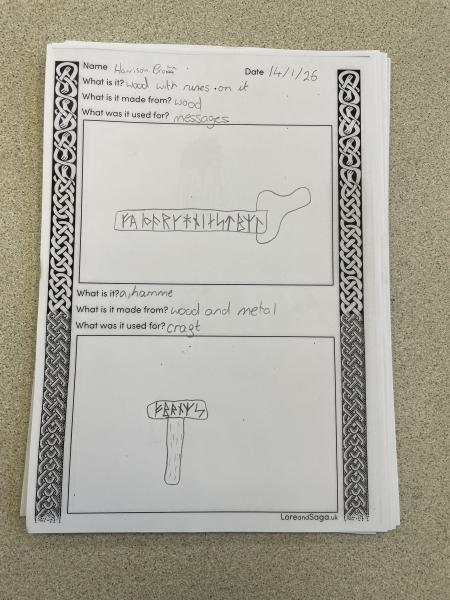 Name Harrison Brown
Date 14/1/26
What is it? wood with runes on it
What is it made from? wood
What was it used for? messages
What is it? a hamme
What is it made from? wood and metal
What was it used for? cragt
LoreandSaga.uk